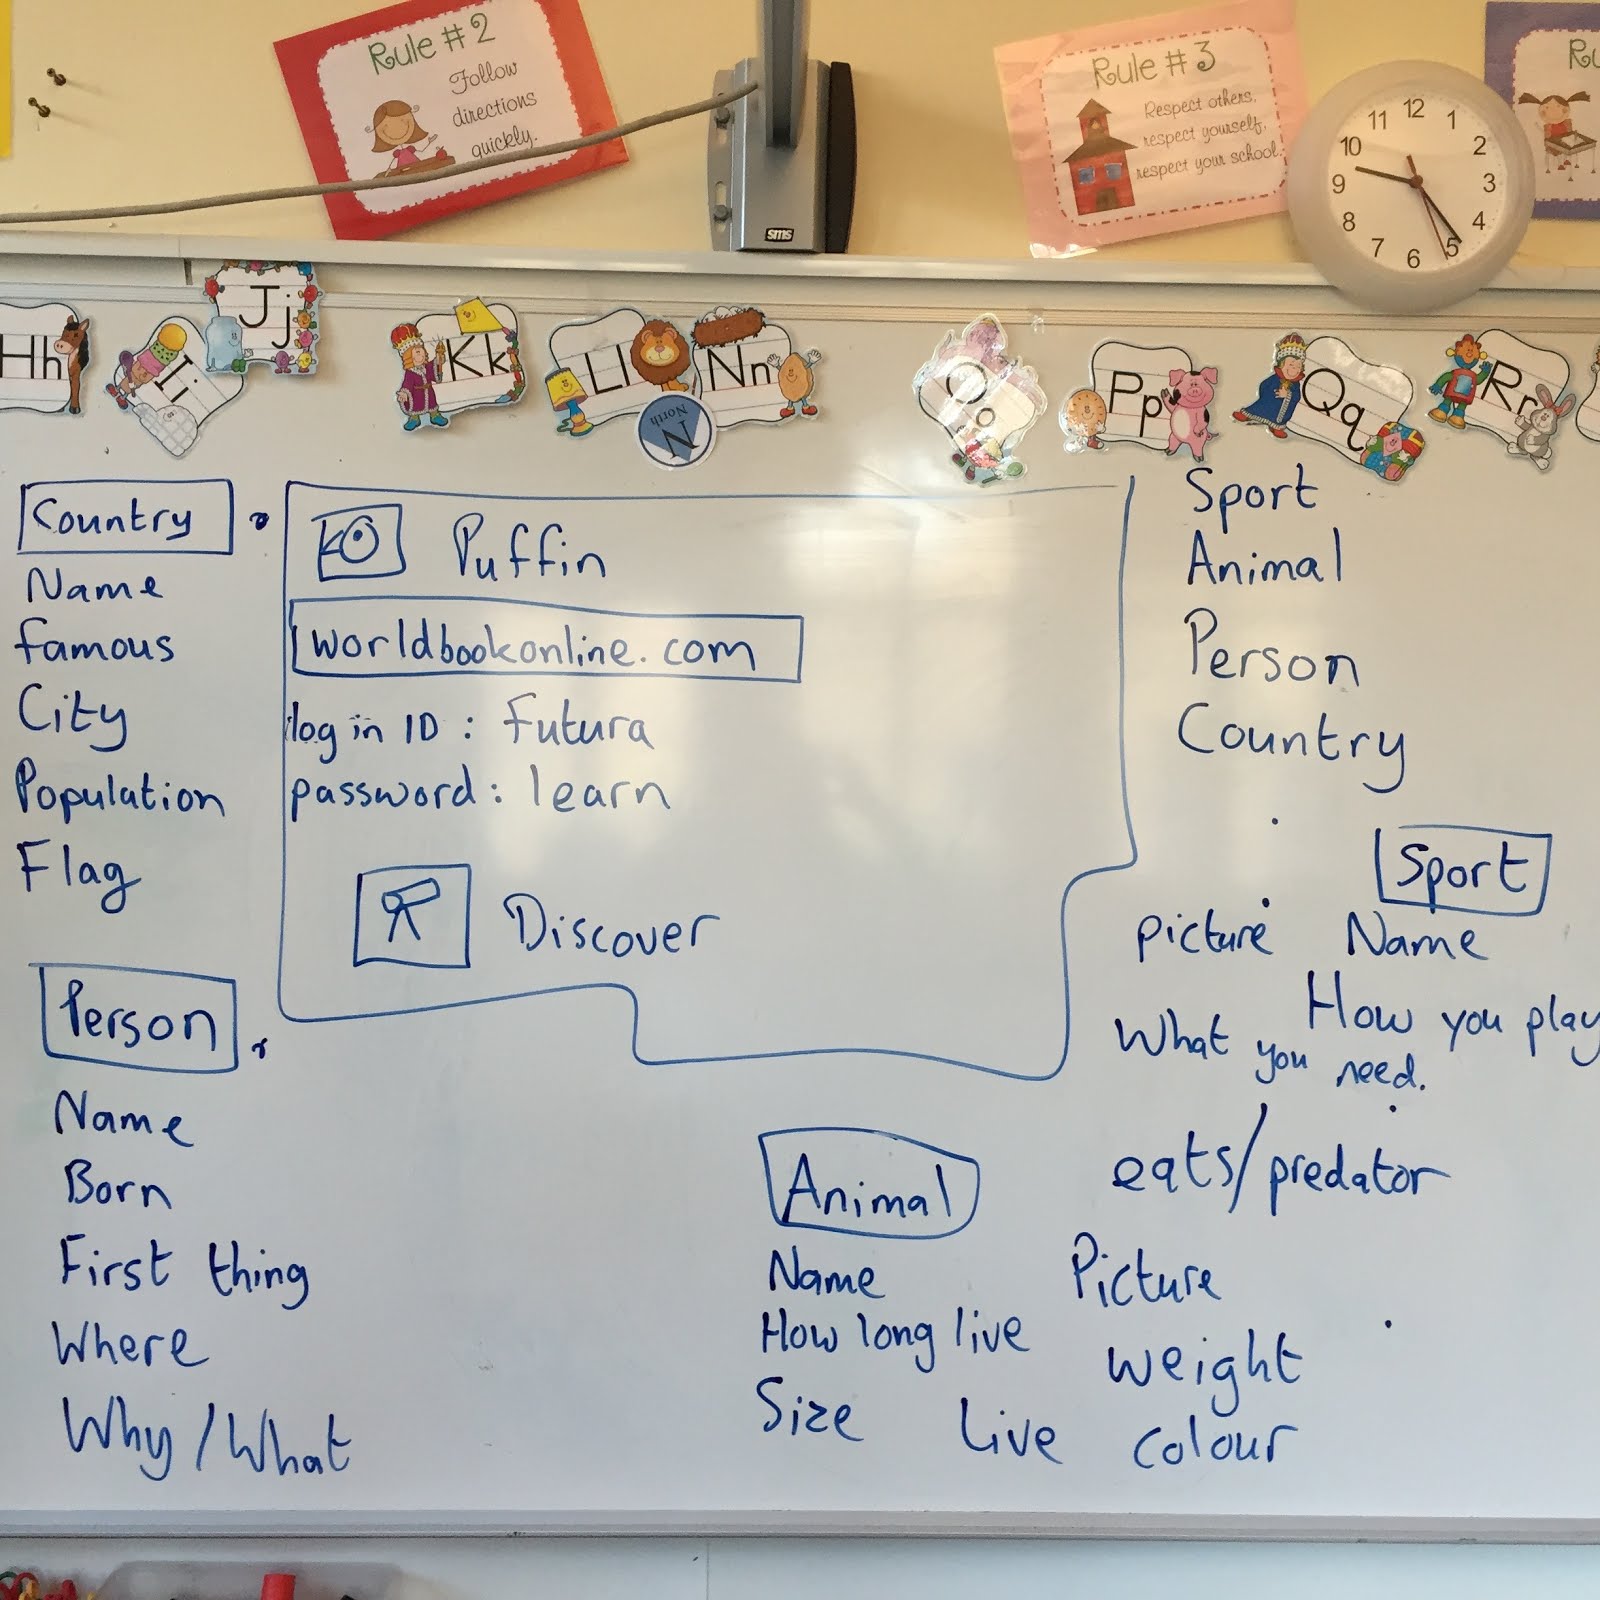 Rule # 2
Follow
directions
quickly.
Rule # 3
Respect others,
respect yourself,
respect your school.
Ru
12
1
2
3
4
5
6
7
8
9
10
11
sms
Hh
Ii
Jj
Kk
Ll
Nn
N
North
Oo
Pp
Qq
Rr
Country
Name
famous
City
Population
Flag
Person
Name
Born
First thing
Where
Why/What
Puffin
worldbookonline.com
log in ID : futura
password : learn
Discover
Sport
Animal
Person
Country
Sport
picture Name
How you play
What you need.
Animal
eats/predator
Name Picture
How long live
weight
Size Live colour